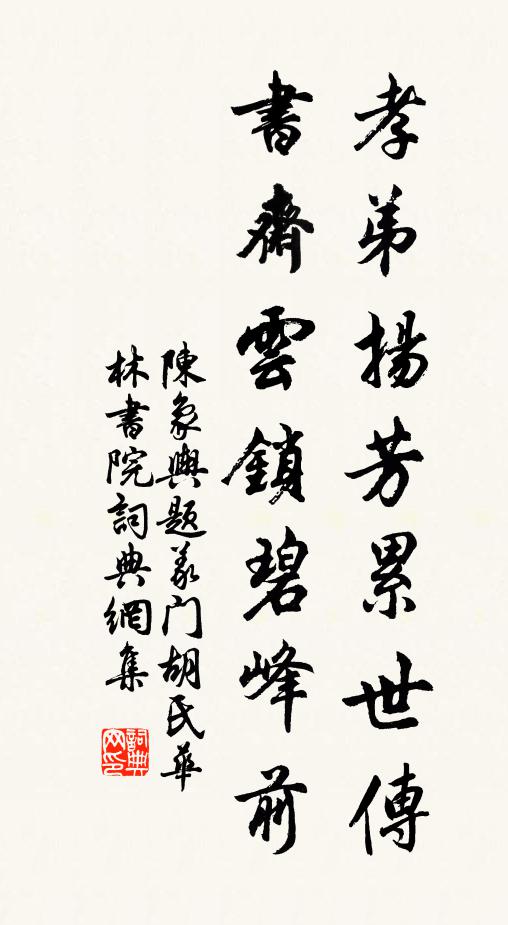 孝弟揚芳累世傳
書齋雲鎖碧峰前
陳象輿題義门胡氏華
林書院詞典網集
詞典网印